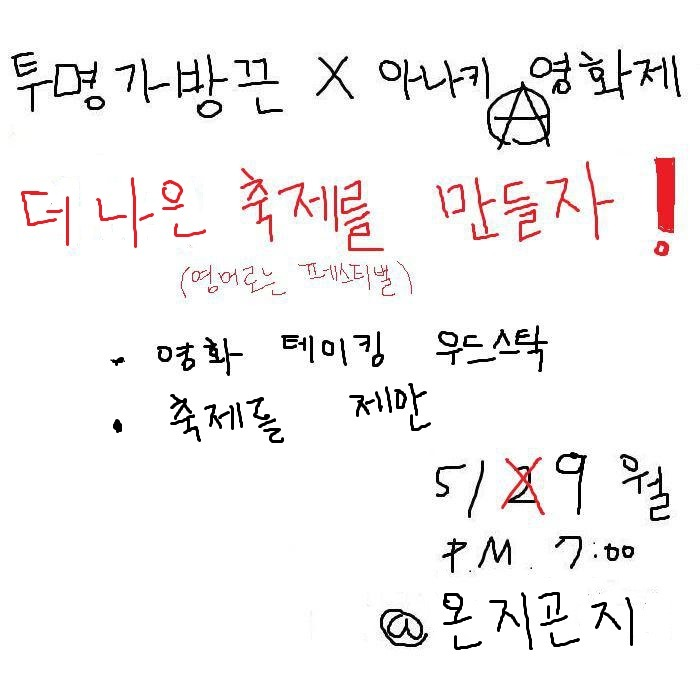 투명가방끈 X 아나키 Ⓐ 영화제
더 나은 축제를 만들자!
(영어로는 페스티벌)
• 영화 테이킹 우드스탁
• 축제를 제안
5/29 월
P.M. 7:00
@온지곤지